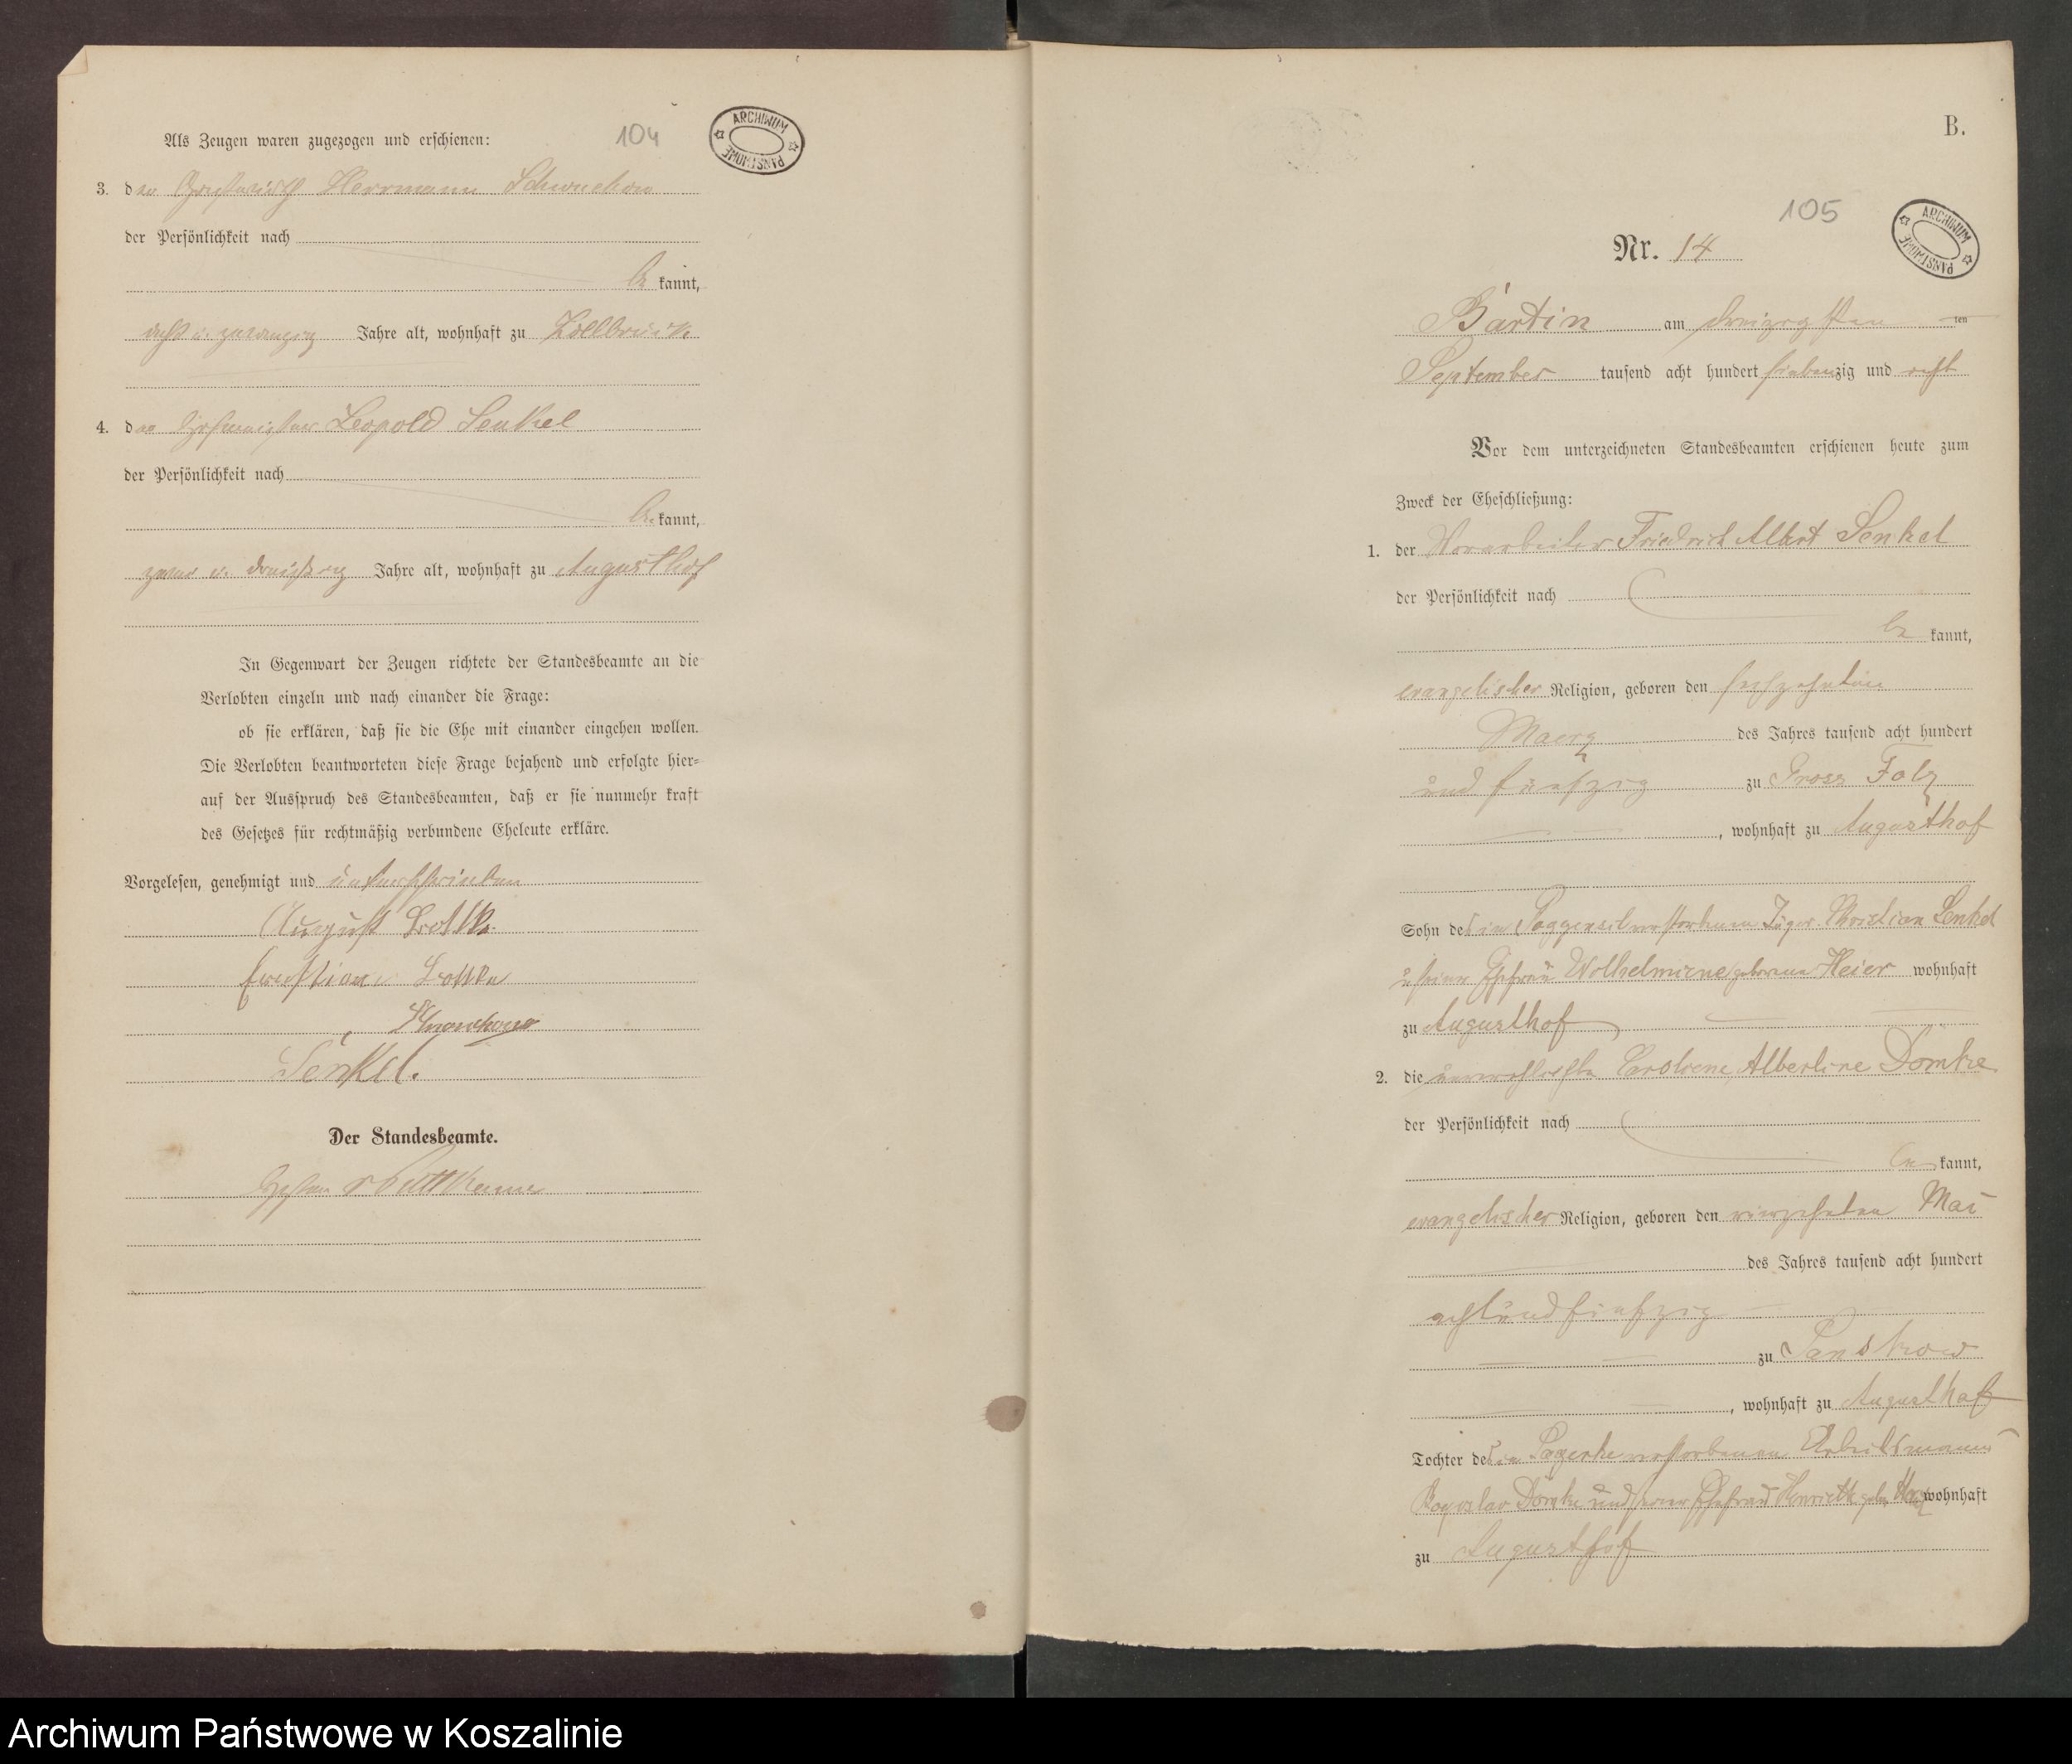 Als Zeugen waren zugezogen und erschienen:
104
ARCHIWUM PAŃSTWOWE
3. der Herrmann Schwuchow
der Persönlichkeit nach
be kannt,
acht u. zwanzig Jahre alt, wohnhaft zu Zollbrück
4. der Leopold Senkel
der Persönlichkeit nach
be kannt,
zwei u. dreißig Jahre alt, wohnhaft zu Augusthof
In Gegenwart der Zeugen richtete der Standesbeamte an die
Verlobten einzeln und nach einander die Frage:
ob sie erklären, daß sie die Ehe mit einander eingehen wollen.
Die Verlobten beantworteten diese Frage bejahend und erfolgte hier=
auf der Ausspruch des Standesbeamten, daß er sie nunmehr kraft
des Gesetzes für rechtmäßig verbundene Eheleute erkläre.
Vorgelesen, genehmigt und unterschrieben
August
Senkel.
Der Standesbeamte.
B.
105
ARCHIWUM PAŃSTWOWE
Nr. 14
Bartin am dreizigsten ten
September tausend acht hundert siebenzig und acht
Vor dem unterzeichneten Standesbeamten erschienen heute zum
Zweck der Eheschließung:
1. der Vorarbeiter Friedrich Albert Senkel
der Persönlichkeit nach
be kannt,
evangelischer Religion, geboren den sechzehnten
Maerz des Jahres tausend acht hundert
und fünfzig zu Gross Volz
, wohnhaft zu Augusthof
Sohn des in verstorbenen Jäger Christian Senkel
u seiner Ehefrau Wilhelmiene geborene Heier wohnhaft
zu Augusthof
2. die unverehelichte Caroliene Albertine Domke
der Persönlichkeit nach
be kannt,
evangelischer Religion, geboren den vierzehnten Mai
des Jahres tausend acht hundert
achtundfünfzig
zu
, wohnhaft zu Augusthof
Tochter des in verstorbenen Arbeitsmanns
Domke und seiner Ehefrau Henriette geb. wohnhaft
zu Augusthof
Archiwum Państwowe w Koszalinie